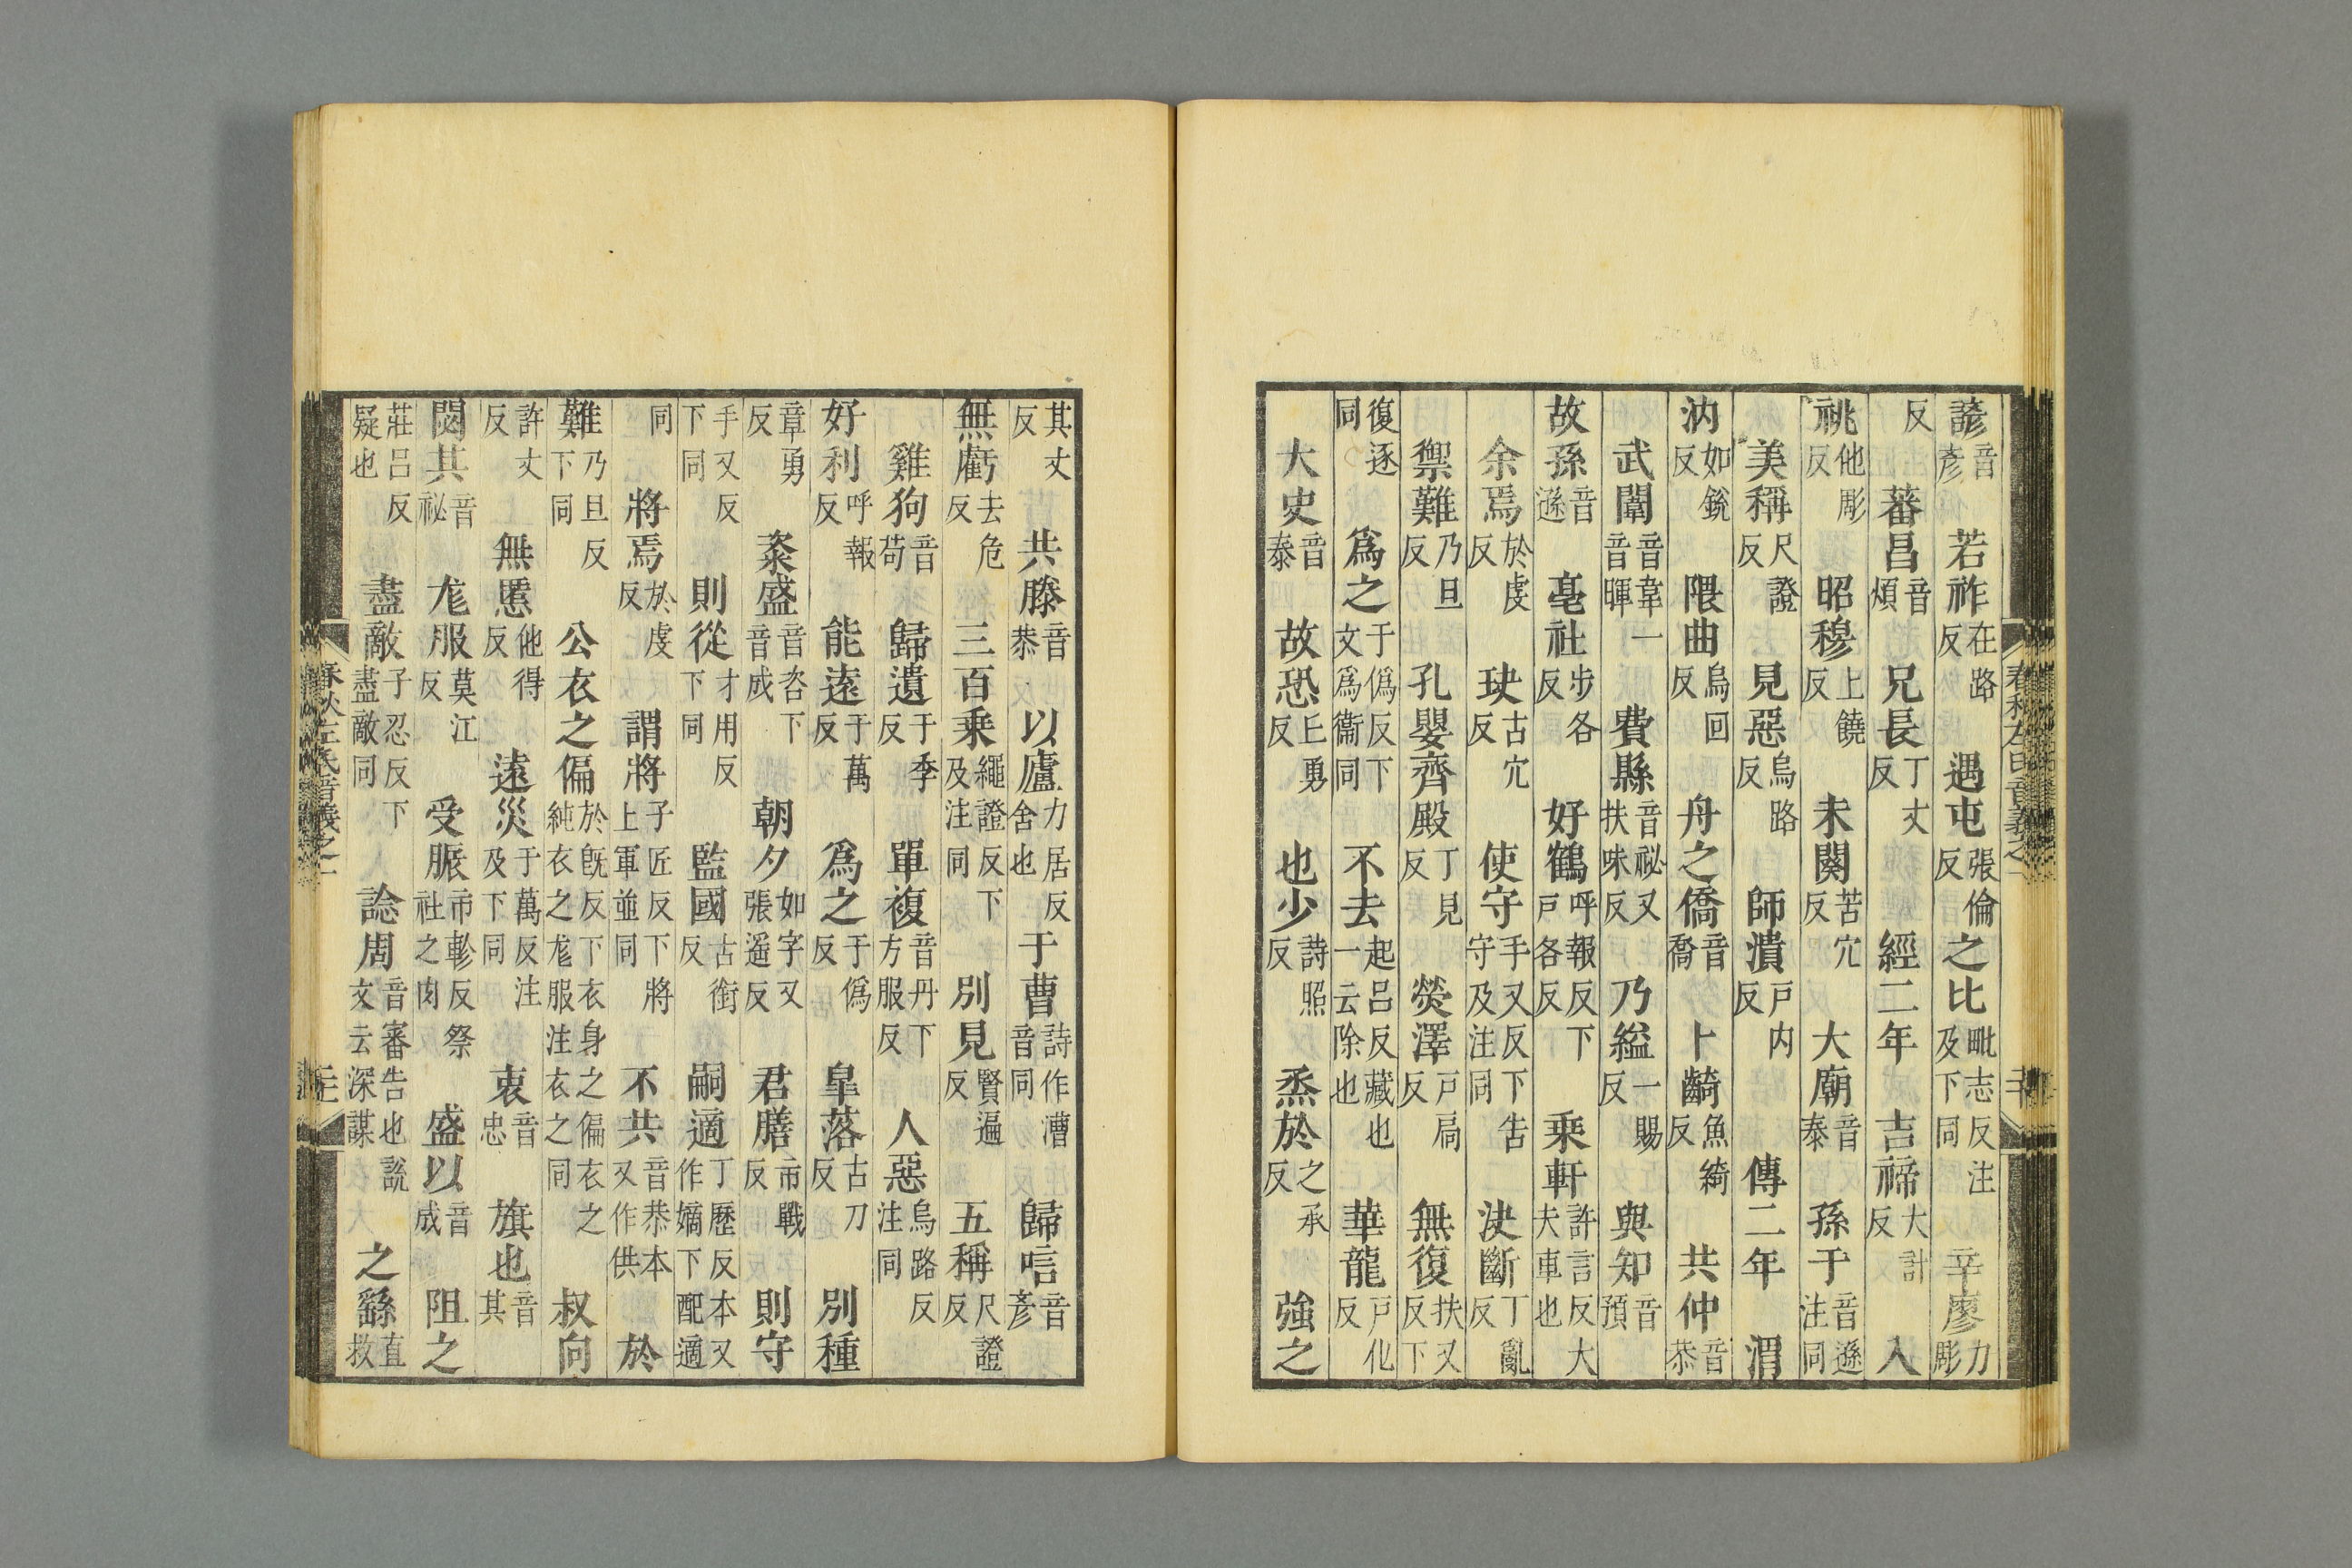 諺音彥 若祚在路反 遇屯張倫反 之比毗志反注及下同 辛廖力彫
反 蕃昌音煩 兄長丁丈反 經二年 吉禘大計反 入
祧他彫反 昭穆上饒反 未闋苦穴反 大廟音泰 孫于音遜注同
美稱尺證反 見惡烏路反 師潰戶內反 傳二年 渭
汭如銳反 隈曲烏回反 舟之僑音喬 卜齮魚綺反 共仲音恭
武闈音韋一音暉 費縣音祕又扶味反 乃縊一賜反 與知音預
故孫音遜 亳社步各反 好鶴呼報反下戶各反 乘軒許言反大夫車也
余焉於虔反 玦古穴反 使守手又反下告守及注同 決斷丁亂反
禦難乃旦反 孔嬰齊殿丁見反 熒澤戶扃反 無復扶又反下
復逐同 爲之于僞反下文爲衞同 不去起呂反藏也一云除也 華龍戶化反
大史音泰 故恐丘勇反 也少詩照反 烝於之承反 強之
其丈反 共滕音恭 以廬力居反舍也 于曹詩作漕音同 歸唁音彥
無虧去危反 三百乘繩證反下及注同 別見賢遍反 五稱尺證反
雞狗音苟 歸遺于季反 單複音丹下方服反 人惡烏路反注同
好利呼報反 能遠于萬反 爲之于僞反 皐落古刀反 別種
章勇反 粢盛音咨下音成 朝夕如字又張遥反 君膳市戰反 則守
手又反下同 則從才用反下同 監國古銜反 嗣適丁歷反本又作嫡下配適
同 將焉於虔反 謂將子匠反下將上軍並同 不共音恭本又作供 於
難乃旦反下同 公衣之偏於旣反下衣身之偏衣之純衣之尨服注衣之同 叔向
許丈反 無慝他得反 遠災于萬反注及下同 衷音忠 旗也音其
閟其音祕 尨服莫江反 受脤市軫反祭社之肉 盛以音成 阻之
莊呂反疑也 盡敵子忍反下盡敵同 諗周音審告也說文云深謀 之繇直救
春秋左氏音義之一